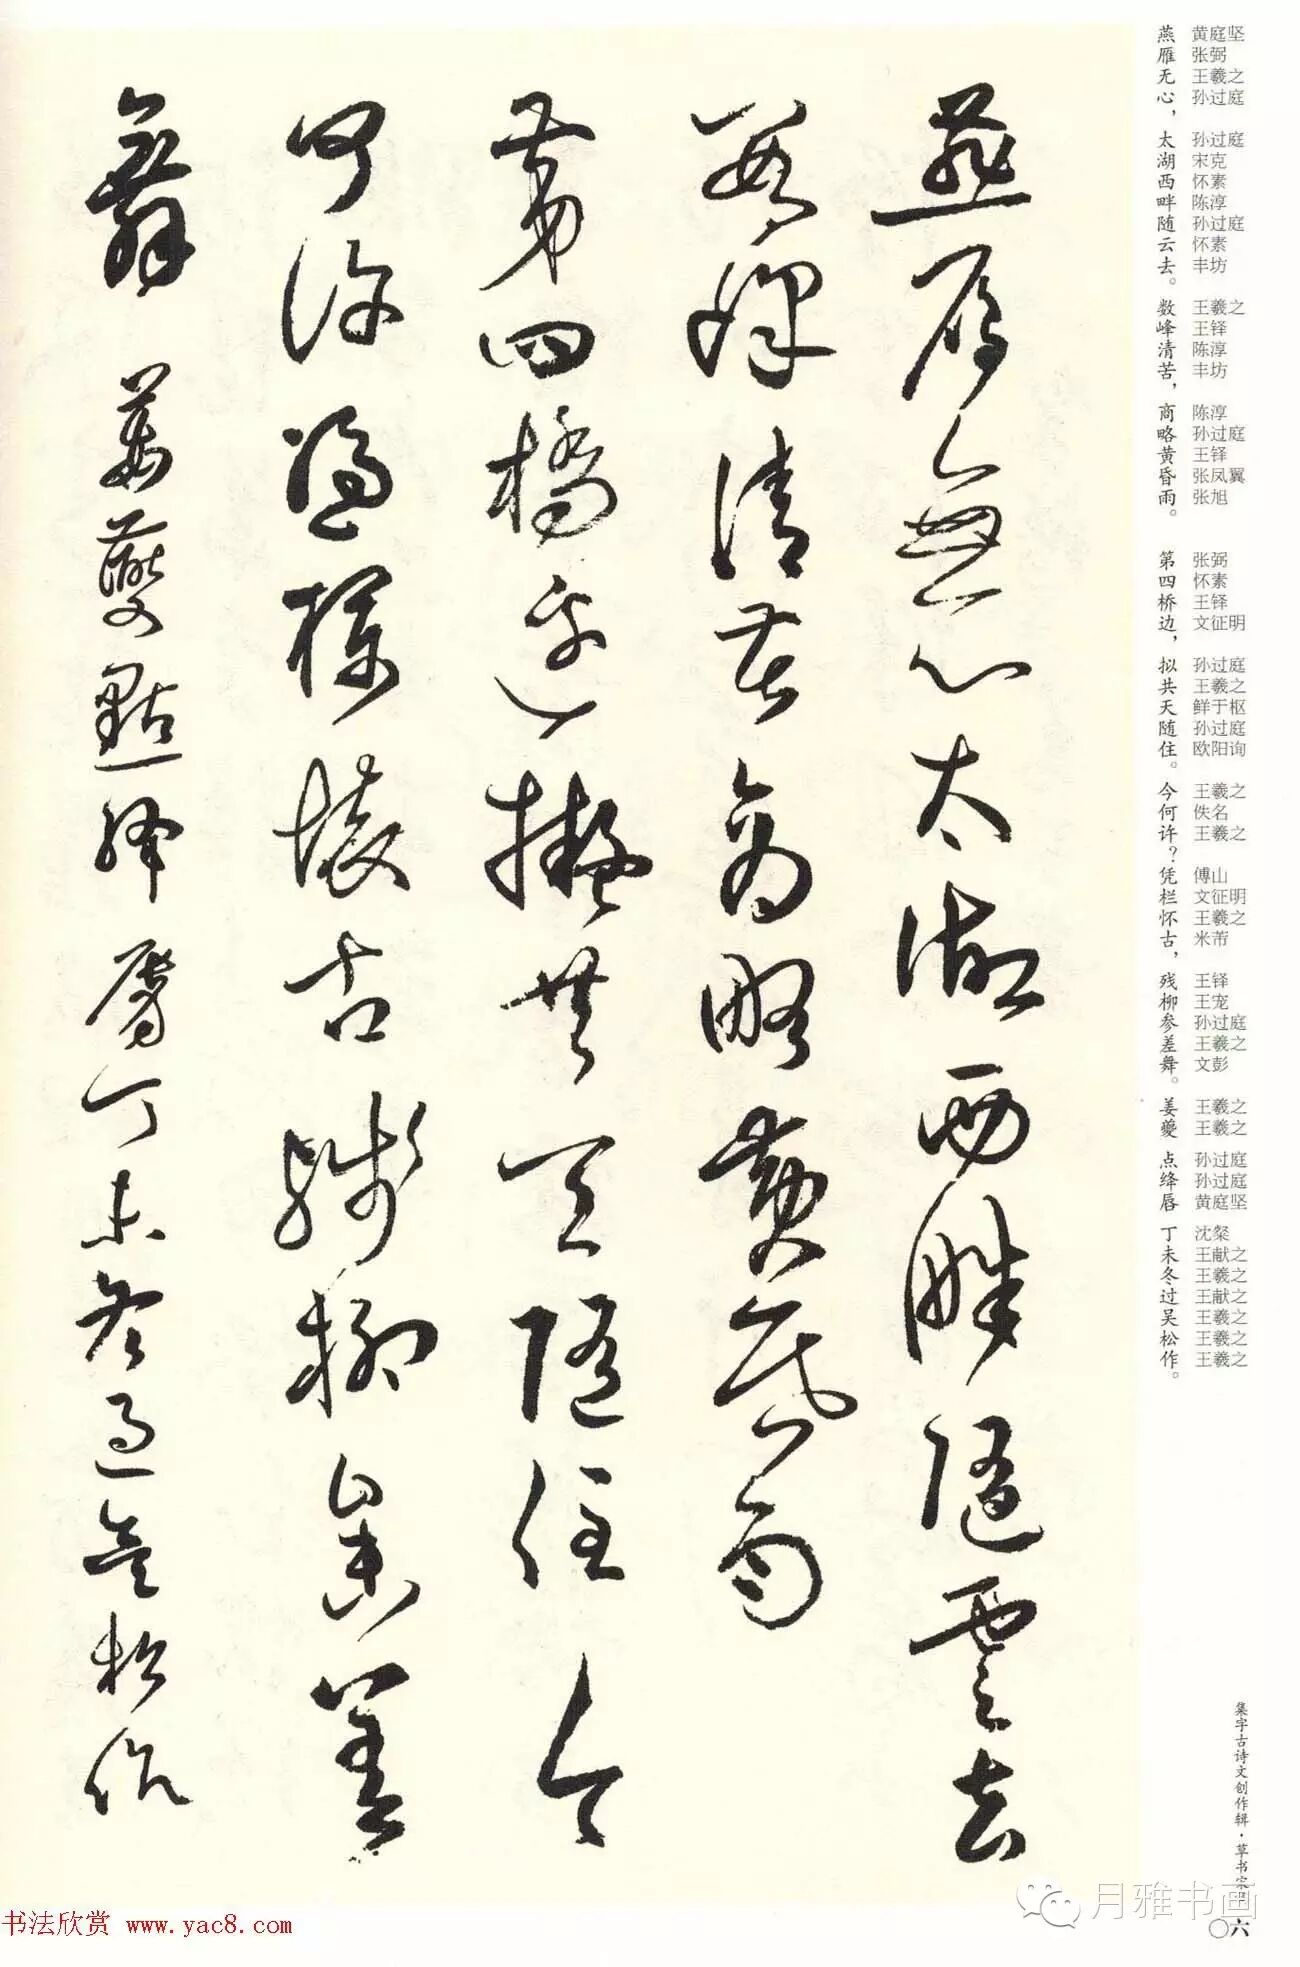 燕雁無心太湖西畔隨雲去
數峰清苦商略黃昏雨
第四橋邊擬共天隨住今
何許憑欄懷古殘柳參差
舞 姜夔點絳唇丁未冬過吳松作
燕雁无心，太湖西畔随云去。数峰清苦，商略黄昏雨。 第四桥边，拟共天随住。今何许？凭栏怀古，残柳参差舞。 姜夔 点绛唇 丁未冬过吴松作。
黄庭坚
张弼
王羲之
孙过庭
孙过庭
宋克
怀素
陈淳
孙过庭
怀素
丰坊
王羲之
王铎
陈淳
丰坊
陈淳
孙过庭
王铎
张凤翼
张旭
张弼
怀素
王铎
文征明
孙过庭
王羲之
鲜于枢
孙过庭
欧阳询
王羲之
佚名
王羲之
傅山
文征明
王羲之
米芾
王铎
王宠
孙过庭
王羲之
文彭
王羲之
王羲之
孙过庭
孙过庭
黄庭坚
沈粲
王献之
王羲之
王献之
王羲之
王羲之
王羲之
集字古诗文创作辑·草书宋
〇六
月雅书画
书法欣赏 www.yac8.com